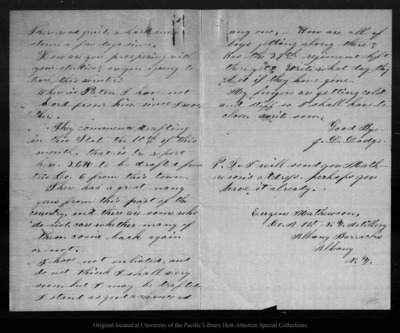 There was quite a hard snow
storm a few days since.
How are you prospering with
your studies? are you going to
teach this winter?
Where is Peter. I have not
heard from him since I was
there.
They commence drafting
in this State the 10th of this
month. there is to report
to be drafted from
this Co. 6 from this town.
There has a great many
gone from this part of the
country, and there are some who
do not care whether many of
them come back again
or not.
I have not enlisted, and
do not think I shall very
soon but I may be drafted
I stand as good a chance as
any one. How are all of
boys getting along there?
Has the 29th regiment left
there yet? Write what day they
left if they have gone.
My fingers are getting cold
and stiff so I shall have to
close. Write soon.
Good Bye.
J. D. Dodge.
P.S. I will send you Math-
ewson's address. perhaps you
have it already.
Eugene Mathewson,
Co. A 1st N.Y. Artillery
Albany Barracks
Albany
N.Y.
Original located at University of the Pacific Library Holt-Atherton Special Collections